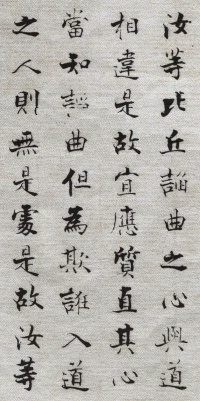 汝等比丘諂曲之心與道
相違是故宜應質直其心
當知諂曲但為欺誑入道
之人則無是處是故汝等